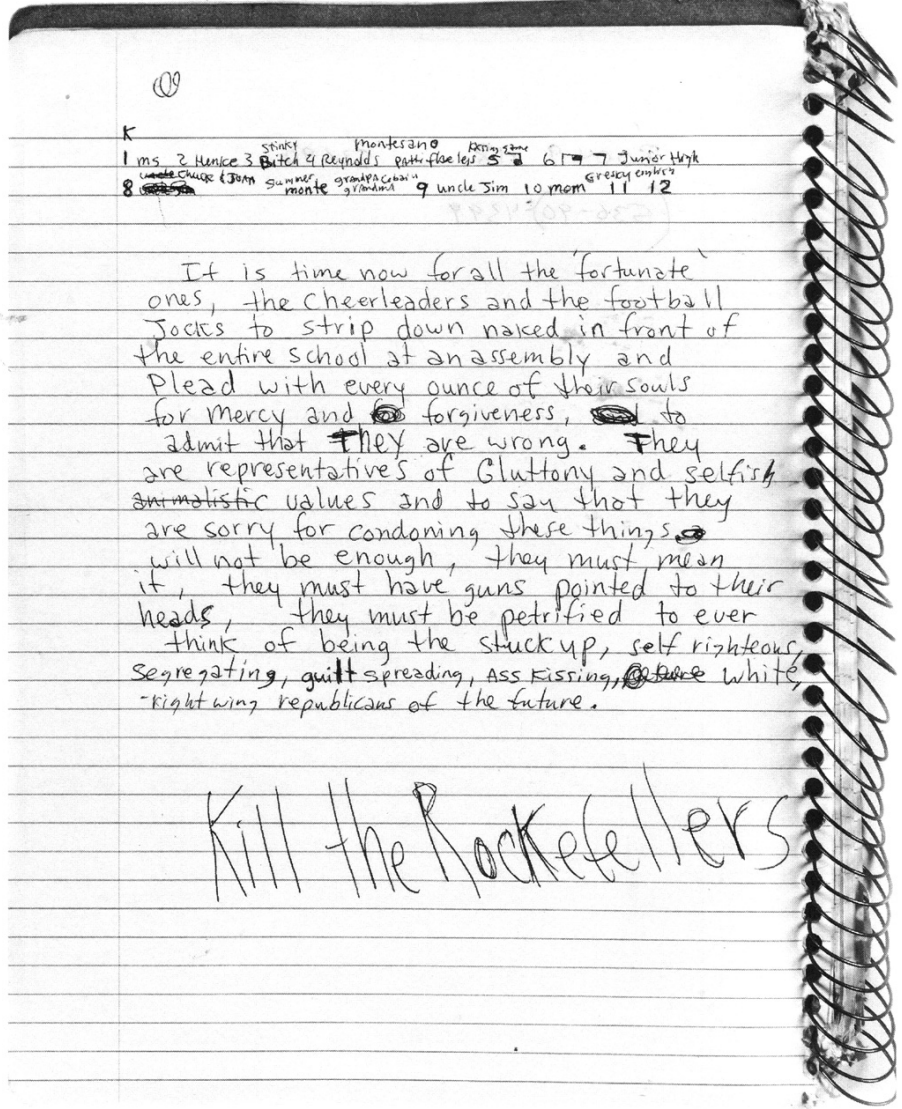 K
Stinky montesano Kissing game
1 ms 2 Henice 3 Bitch 4 Reynolds 5 2 6 7 7 Junior High
uncle Chuck & Joan Summer grandpa Cobain Gresky english
8 monte grandma 9 uncle Jim 10 mom 11 12
It is time now for all the "fortunate"
ones, the cheerleaders and the football
Jocks to strip down naked in front of
the entire school at an assembly and
Plead with every ounce of their souls
for mercy and forgiveness, to
admit that They are wrong. They
are representatives of Gluttony and selfish
animalistic values and to say that they
are sorry for condoning these things
will not be enough, they must mean
it, they must have guns pointed to their
heads, they must be petrified to ever
think of being the stuck up, self righteous,
segregating, guilt spreading, Ass Kissing, white,
right wing republicans of the future.
Kill the Rockefellers